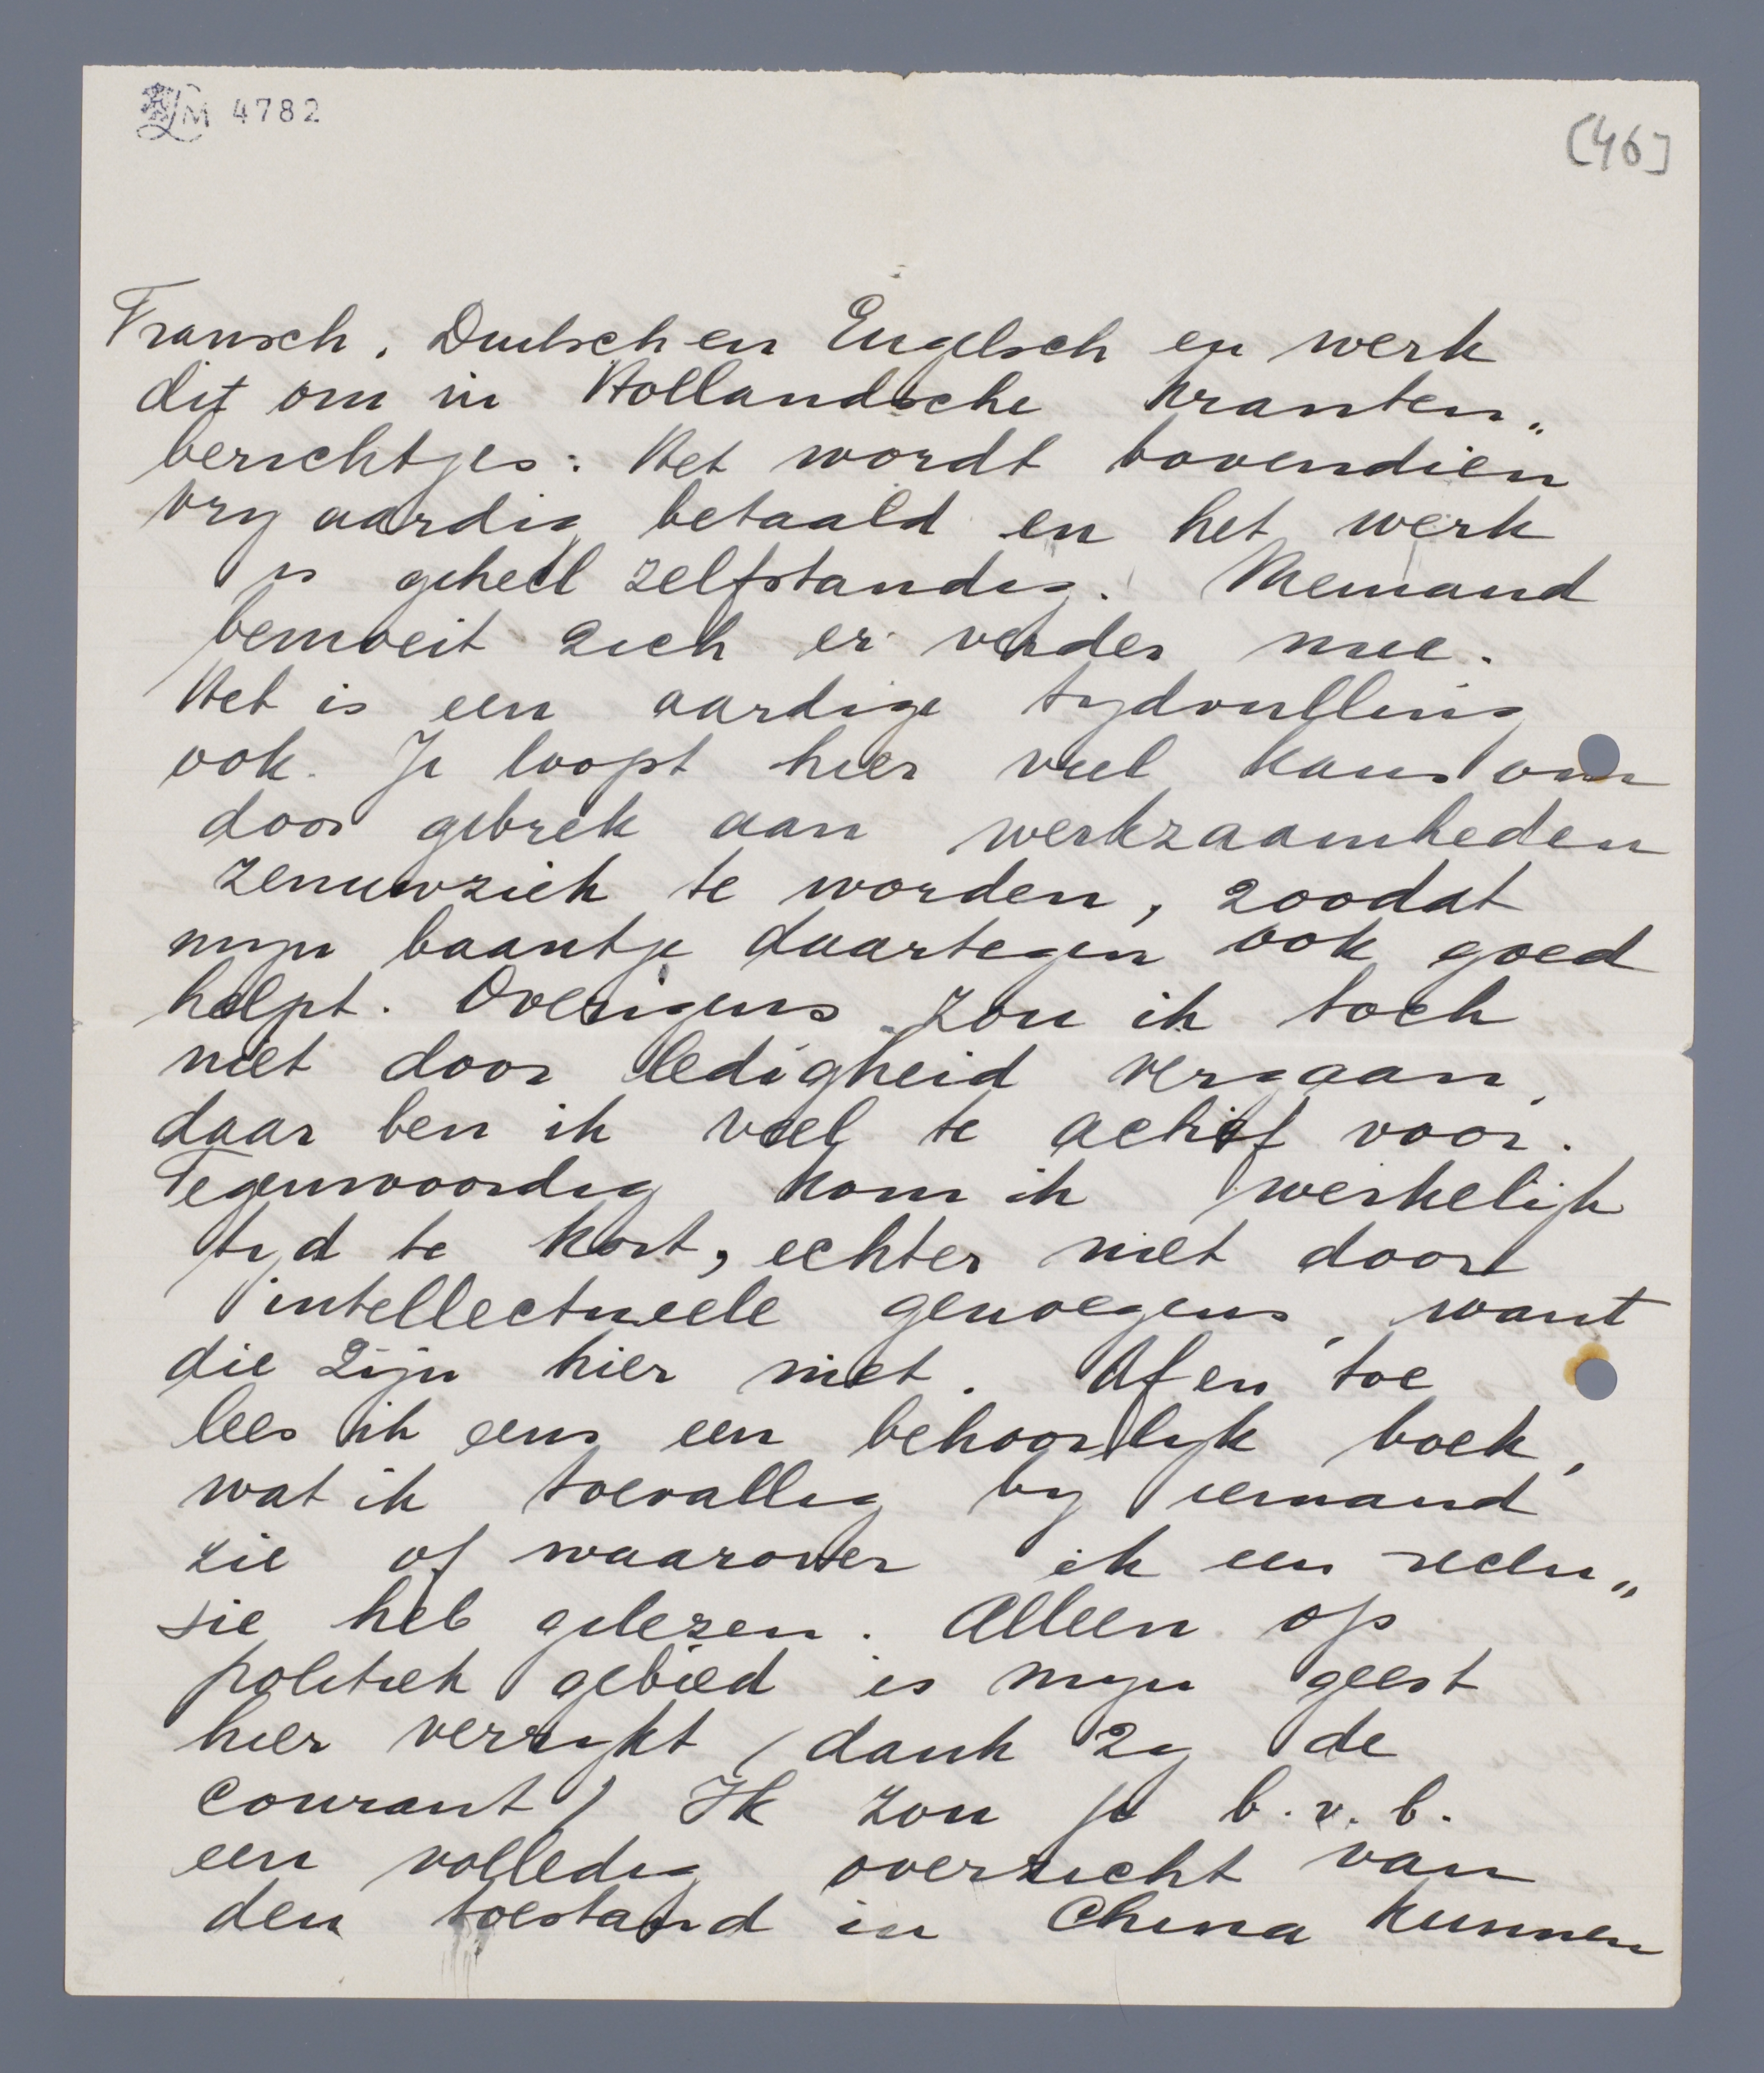 LM 4782
[46]
Fransch, Duitsch en Engelsch en werk
dit om in Hollandsche kranten„
berichtjes: Het wordt bovendien
vry aardig betaald en het werk
is geheel zelfstandig. Niemand
bemoeit zich er verder mee.
Het is een aardige tydvulling
ook. Je loopt hier veel kans om
door gebrek aan werkzaamheden
zenuwziek te worden, zoodat
myn baantje daartegen ook goed
helpt. Overigens zou ik toch
niet door ledigheid vergaan,
daar ben ik veel te actief voor.
Tegenwoordig kom ik werkelijk
tyd te kort, echter niet door
intellectueele genoegens, want
die zijn hier niet. Af en toe
lees ik eens een behoorlyk boek,
wat ik toevallig by iemand
zie of waarover ik een recen„
sie heb gelezen. Alleen op
politiek gebied is myn geest
hier verrykt (dank zy de
courant) Ik zou je b.v.b.
een volledig overzicht van
den toestand in China kunnen